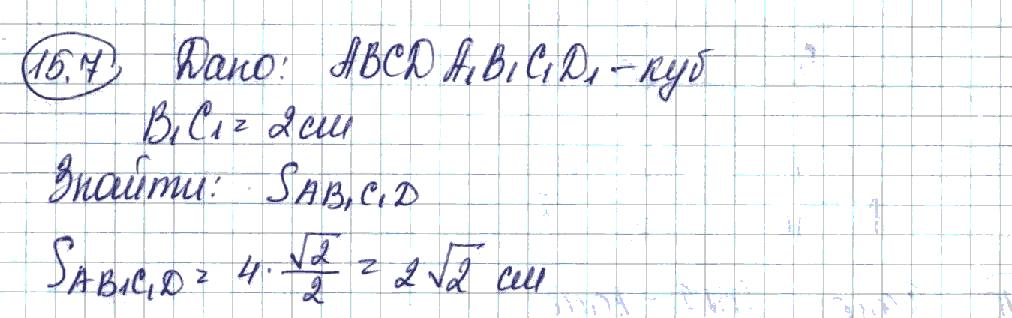 15.7 Дано: ABCDA₁B₁C₁D₁ - куб
B₁C₁ = 2 см
Знайти: S AB₁C₁D
S AB₁C₁D = 4 · √2/2 = 2√2 см